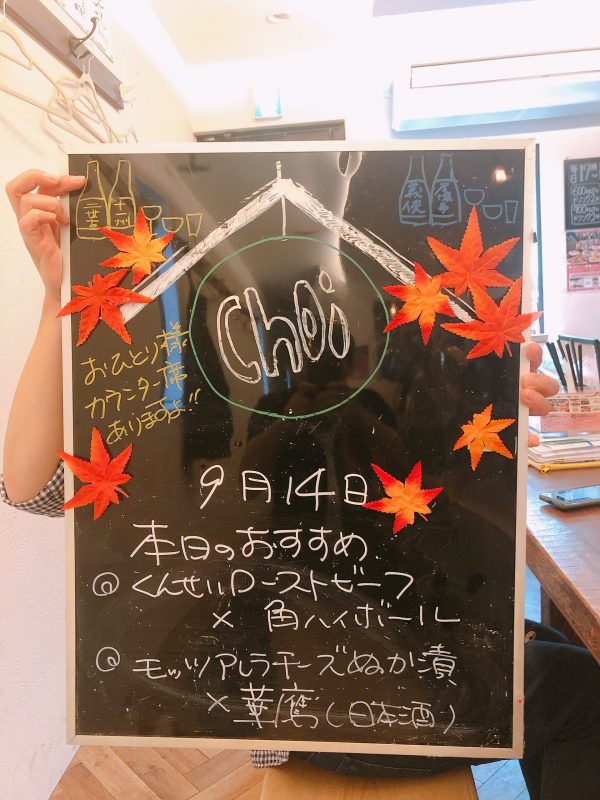 十一州
Choi
おひとり様
カウンター席
あります!!
9月14日
本日のおすすめ
◎くんせいローストビーフ
×角ハイボール
◎モッツアレラチーズぬか漬
×華鷹(日本酒)